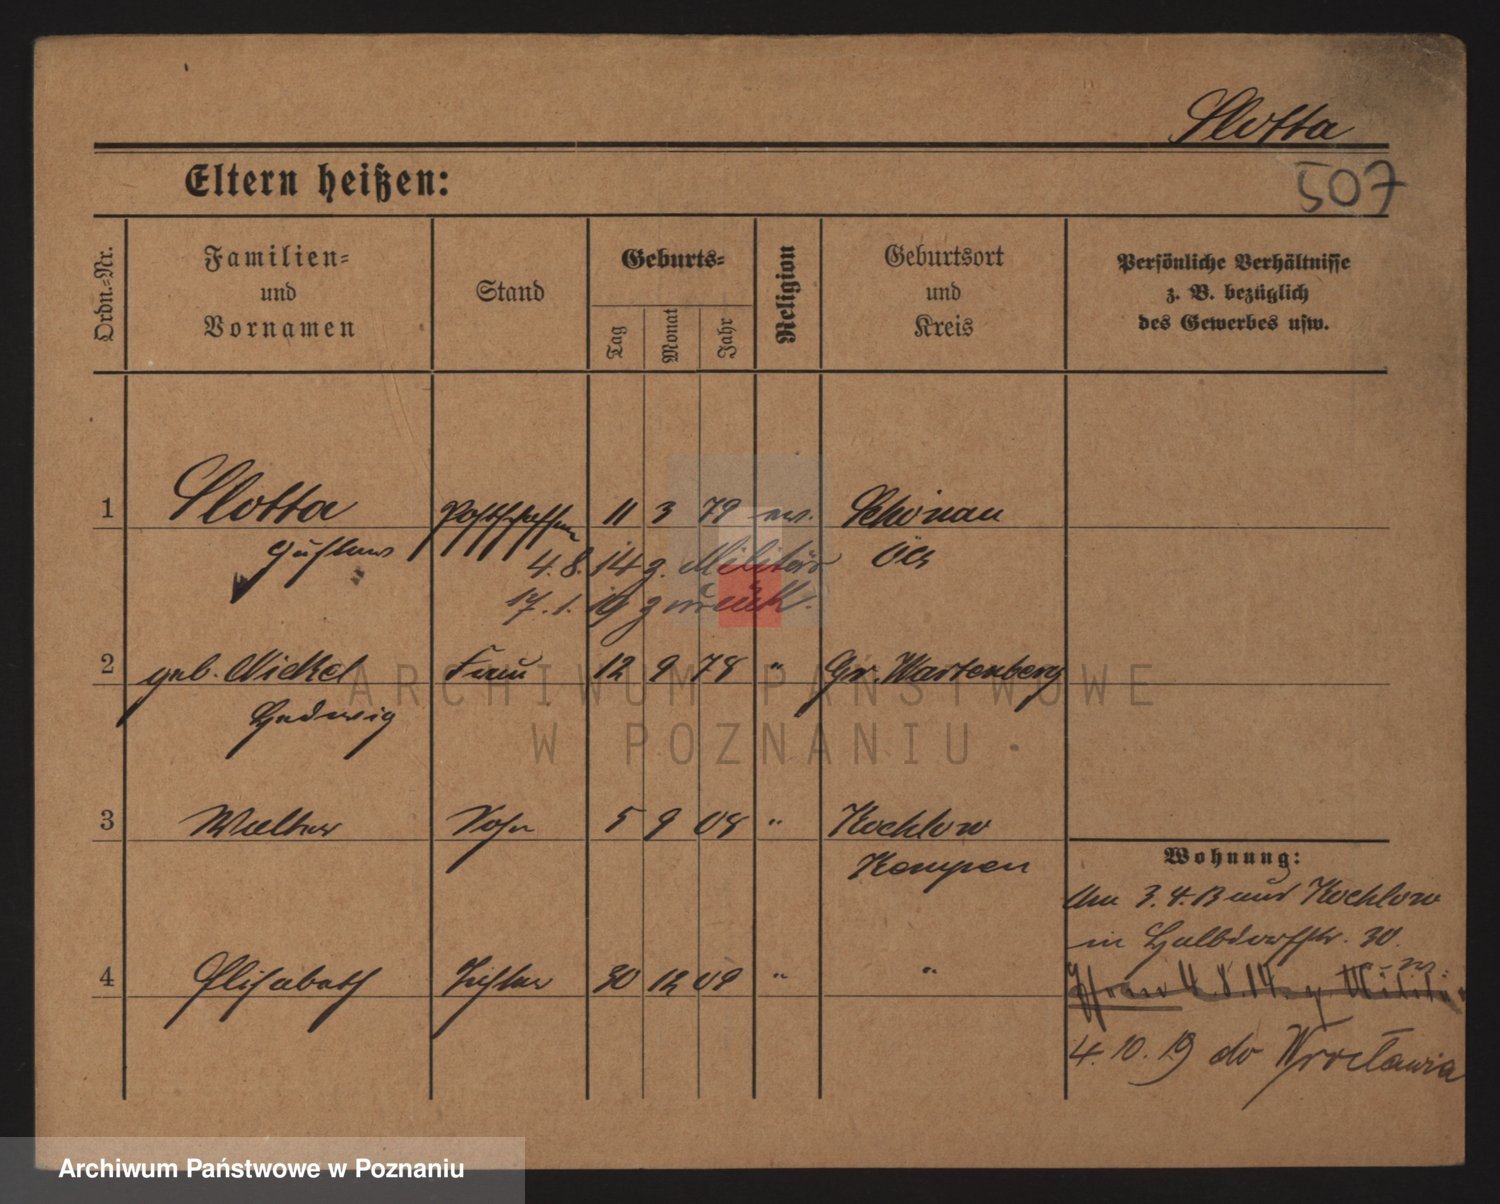 Slotta
507
Eltern heißen:
Ordn.-Nr.
Familien-
und
Vornamen
Stand
Geburts-
Tag
Monat
Jahr
Religion
Geburtsort
und
Kreis
Persönliche Verhältnisse
z. B. bezüglich
des Gewerbes usw.
1 Slotta Postschaffner 11 3 79 ev. Schönau
Gustav
4.8.14 z. Militär Öls
17.1.19 zurück.
2 geb. Nickel Frau 12 9 78 " Gr. Wartenberg
Hedwig
3 Walter Sohn 5 9 08 " Kochlow
Kempen
Wohnung:
Am 3.4.13 aus Kochlow
in Halbdorfstr. 30.
4 Elisabeth Tochter 30 12 09 " "
4.8.14 z. Militär
4.10.19 do Wrocławia
ARCHIWUM PAŃSTWOWE
W POZNANIU
Archiwum Państwowe w Poznaniu